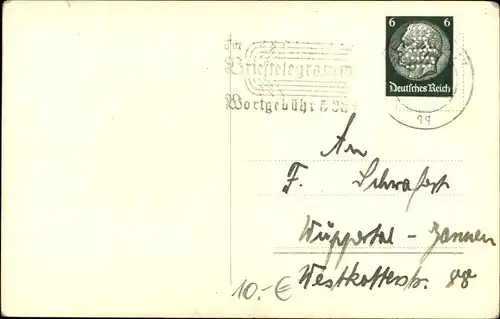 Im
Brieftelegramm
Wortgebühr 5 Rpf
6 6
Deutsches Reich
An
F. Schrafert
Wuppertal - Barmen
Westkotterstr. 88
10.- €